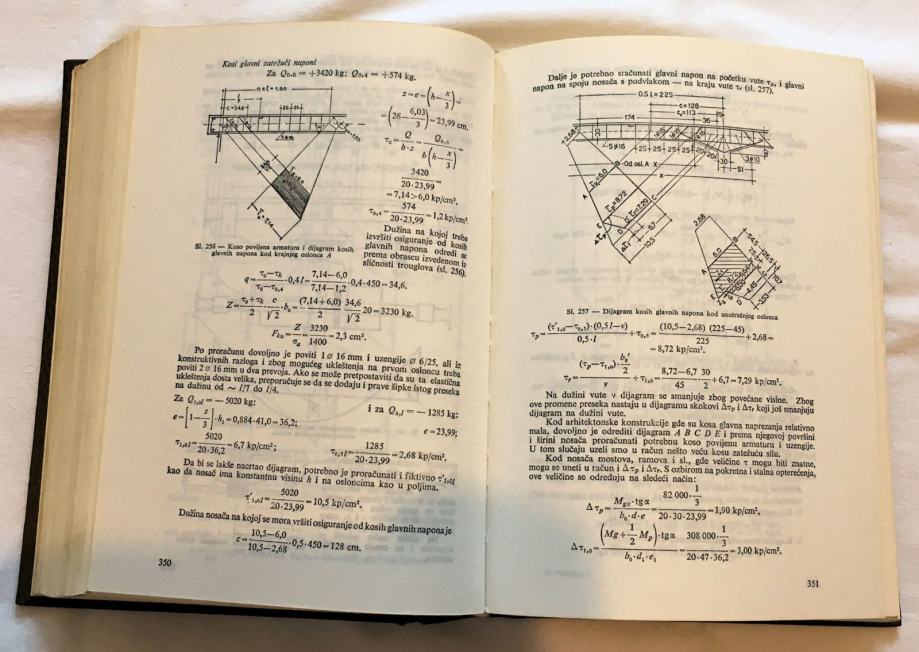 Kosi glavni zatežući naponi
Za Q₀,₀ = +3420 kg; Q₀,₄ = +574 kg.
z=e=(h-x/3)=
=(26-6,03/3)=23,99 cm.
τ₀=Q/(b·z)=Q₀,₀/(b(h-x/3))
3420/(20·23,99)=
=7,14>6,0 kp/cm².
τ₀,₄=574/(20·23,99)=1,2 kp/cm².
Dužina na kojoj treba
izvršiti osiguranje od kosih
glavnih napona odredi se
prema obrascu izvedenom iz
sličnosti trouglova (sl. 256).
Sl. 256 — Koso povijena armatura i dijagram kosih
glavnih napona kod krajnjeg oslonca A
(τ₀-τk)/(τ₀-τ₀,₄)·0,4 l=(7,14-6,0)/(7,14-1,2)·0,4·450=34,6.
Z=(τ₀+τk)/2·c/√2·b₀=(7,14+6,0)/2·34,6/√2·20=3230 kg.
Z/σ=3230/1400=2,3 cm².
Po proračunu dovoljno je poviti 1 ø 16 mm i uzengije ø 6/25, ali iz
konstruktivnih razloga i zbog mogućeg uklještenja na prvom osloncu treba
poviti 2 ø 16 mm u dva prevoja. Ako se može pretpostaviti da su ta elastična
uklještenja dosta velika, preporučuje se da se dodaju i prave šipke istog preseka
na dužini od ~ l/7 do l/4.
Za Q₁,₀l = — 5020 kg: i za Q₀,l = — 1285 kg:
·h₁=0,884·41,0=36,2; e=23,99;
5020/(20·36,2)=6,7 kp/cm²; 1285/(20·23,99)=2,68 kp/cm².
Da bi se lakše nacrtao dijagram, potrebno je proračunati i fiktivno τ'₁,₀l
kao da nosač ima konstantnu visinu h i na osloncima kao u poljima.
τ'₁,₀l=5020/(20·23,99)=10,5 kp/cm².
Dužina nosača na kojoj se mora vršiti osiguranje od kosih glavnih napona je
c=(10,5-6,0)/(10,5-2,68)·0,5·450=128 cm.
350
Dalje je potrebno sračunati glavni napon na početku vute τp, i glavni
napon na spoju nosača s podvlakom — na kraju vute τv (sl. 257).
0.5 L = 225
c=128
c₁=113
174
36
5ø16
25
25
25
25
20
20
30
51
3ø10
Od osl. A
X
X
2,68
τk=6,0
τp=8,72
8,7
10,5
A
B
C
D
E
2,68
6,0
A
B
E
D
4,45
3,53
107
Sl. 257 — Dijagram kosih glavnih napona kod unutrašnjeg oslonca
τp=(τ'₁,₀-τ₀,₅)·(0,5 l-v)/(0,5·l)+τ₀,₅=(10,5-2,68) (225-45)/225+2,68=
=8,72 kp/cm².
(τp-τ₁,₀)·b₀'/2/v+τ₁,₀=(8,72-6,7)/45·30/2+6,7=7,29 kp/cm².
Na dužini vute v dijagram se smanjuje zbog povećane visine. Zbog
ove promene preseka nastaju u dijagramu skokovi Δτp i Δτv koji još smanjuju
dijagram na dužini vute.
Kod arhitektonske konstrukcije gde su kosa glavna naprezanja relativno
mala, dovoljno je odrediti dijagram A B C D E i prema njegovoj površini
i širini nosača proračunati potrebnu koso povijenu armaturu i uzengije.
U tom slučaju uzeli smo u račun nešto veću kosu zatežuću silu.
Kod nosača mostova, ramova i sl., gde veličine τ mogu biti znatne,
mogu se uneti u račun i Δτp i Δτv. S obzirom na pokretna i stalna opterećenja,
ove veličine se određuju na sledeći način:
Δτp=Mgx·tgα/(b₀·d·e)=82 000·1/3/(20·30·23,99)=1,90 kp/cm²,
Δτ₁,₀=(Mg+1/2 Mp)·tgα/(b₀·d₁·e₁)=308 000·1/3/(20·47·36,2)=3,00 kp/cm².
351